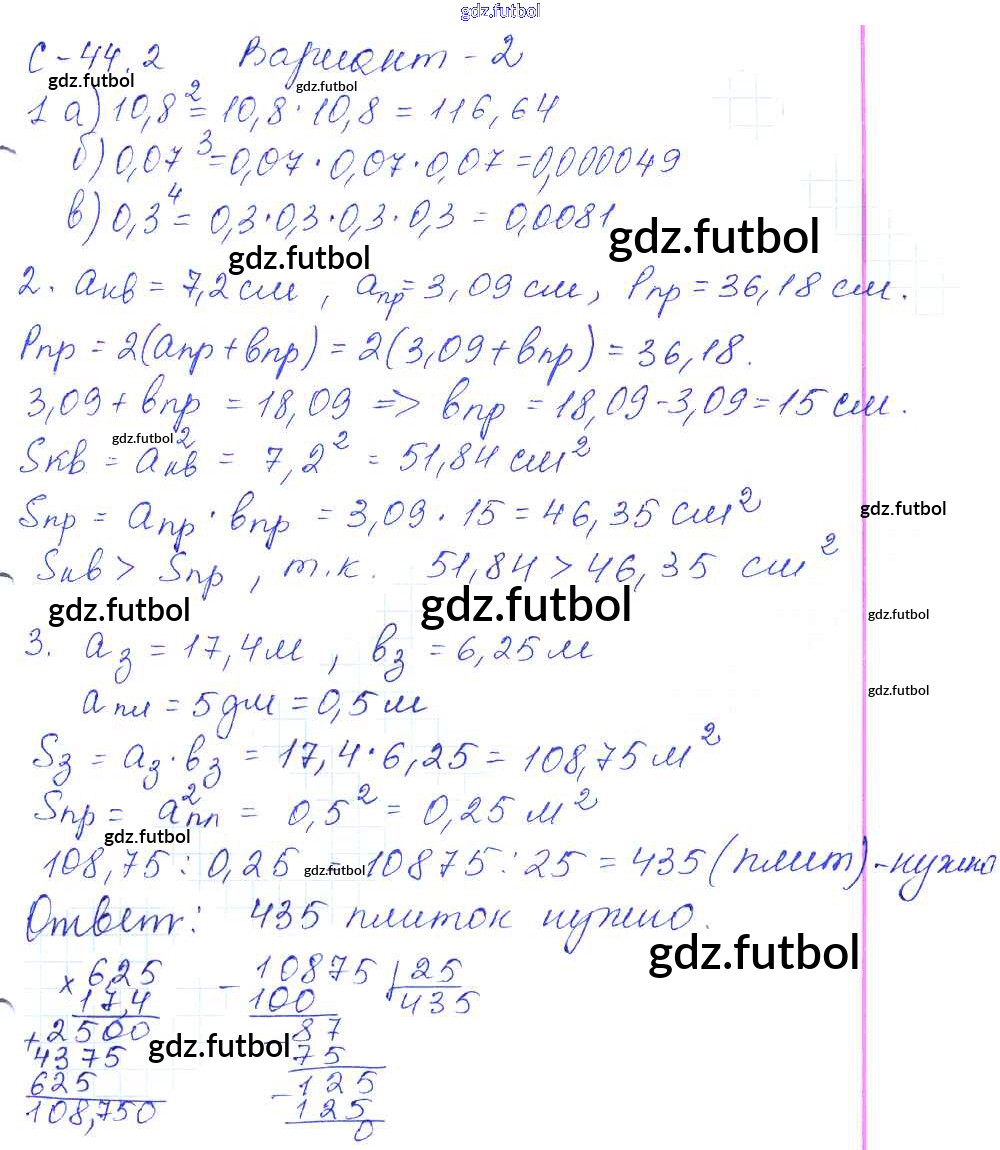 gdz.futbol
С-44.2 Вариант-2
gdz.futbol gdz.futbol
1 а) 10,8² = 10,8 · 10,8 = 116,64
б) 0,07³ = 0,07 · 0,07 · 0,07 = 0,000049
в) 0,3⁴ = 0,3 · 0,3 · 0,3 · 0,3 = 0,0081
gdz.futbol gdz.futbol
2. aкв = 7,2 см, aпр = 3,09 см, Pпр = 36,18 см.
Pпр = 2(aпр + bпр) = 2(3,09 + bпр) = 36,18.
3,09 + bпр = 18,09 => bпр = 18,09 - 3,09 = 15 см.
gdz.futbol
Sкв = a²кв = 7,2² = 51,84 см²
Sпр = aпр · bпр = 3,09 · 15 = 46,35 см²
gdz.futbol
Sкв > Sпр, т.к. 51,84 > 46,35 см²
gdz.futbol gdz.futbol gdz.futbol
3. aз = 17,4 м, bз = 6,25 м
gdz.futbol
aпл = 5 дм = 0,5 м
Sз = aз · bз = 17,4 · 6,25 = 108,75 м²
Sпр = a²пл = 0,5² = 0,25 м²
gdz.futbol
108,75 : 0,25 = 10875 : 25 = 435 (плит) - нужно
gdz.futbol
Ответ: 435 плиток нужно.
gdz.futbol
× 6,25 - 10875 | 25
17,4 100 435
+ 2500 - 87
4375 75
gdz.futbol
625 - 125
108,750 125
0